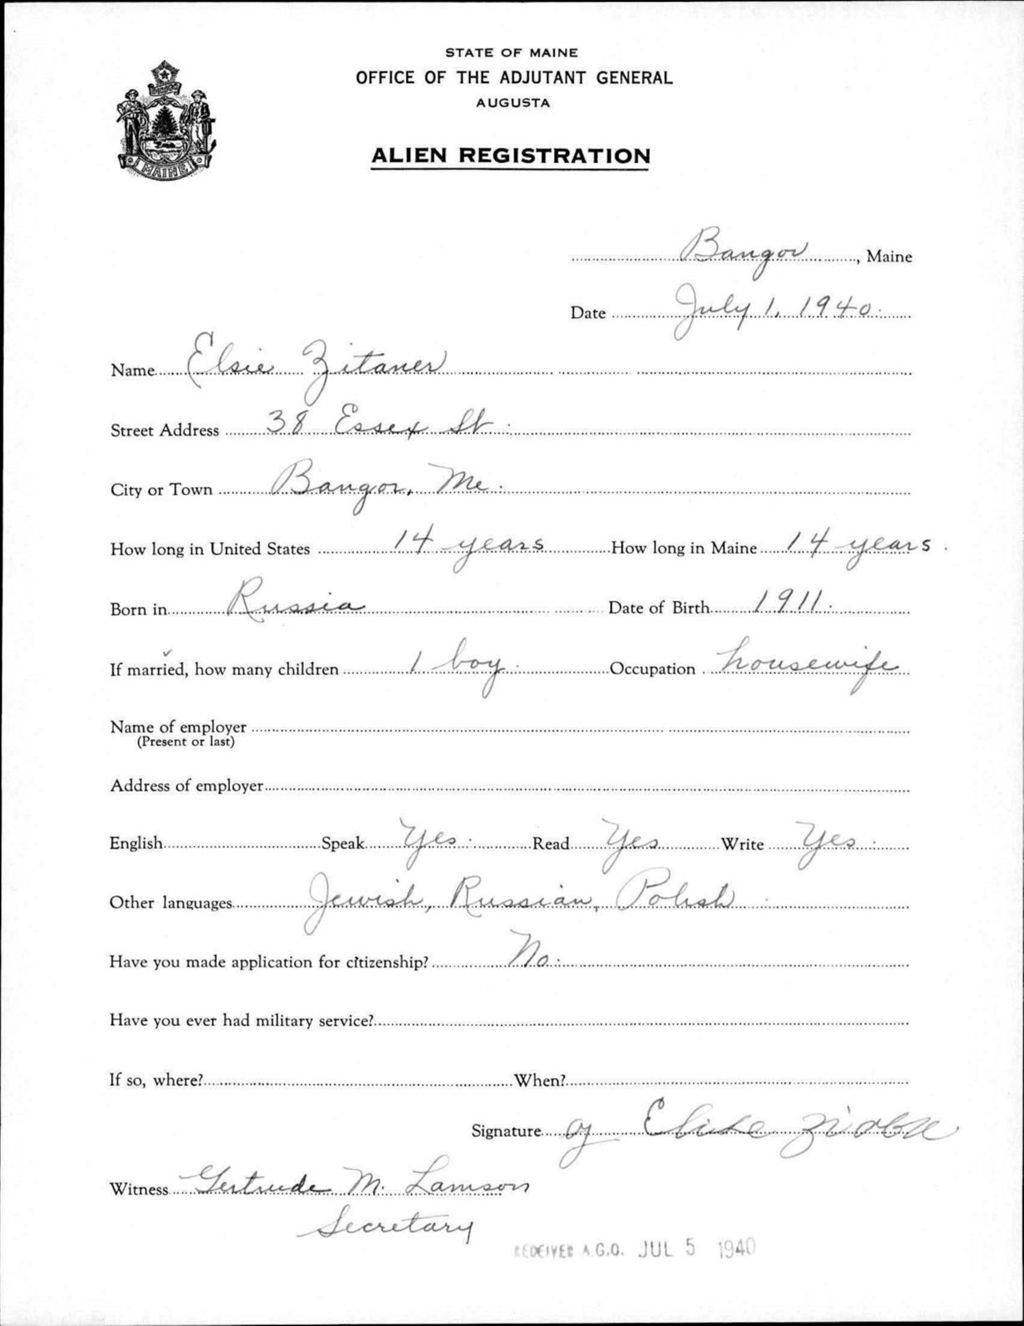 STATE OF MAINE
OFFICE OF THE ADJUTANT GENERAL
AUGUSTA
ALIEN REGISTRATION
MAINE
Bangor, Maine
Date July 1, 1940.
Name Elsie Zitaner
Street Address 38 Essex St.
City or Town Bangor, Me.
How long in United States 14 years How long in Maine 14 years.
Born in Russia Date of Birth 1911.
If married, how many children 1 boy. Occupation housewife
Name of employer
(Present or last)
Address of employer
English Speak Yes. Read Yes Write Yes.
Other languages Jewish, Russian, Polish.
Have you made application for citizenship? No.
Have you ever had military service?
If so, where? When?
Signature of
Witness Gertrude M. Lamson
Secretary
RECEIVED A.G.O. JUL 5 1940